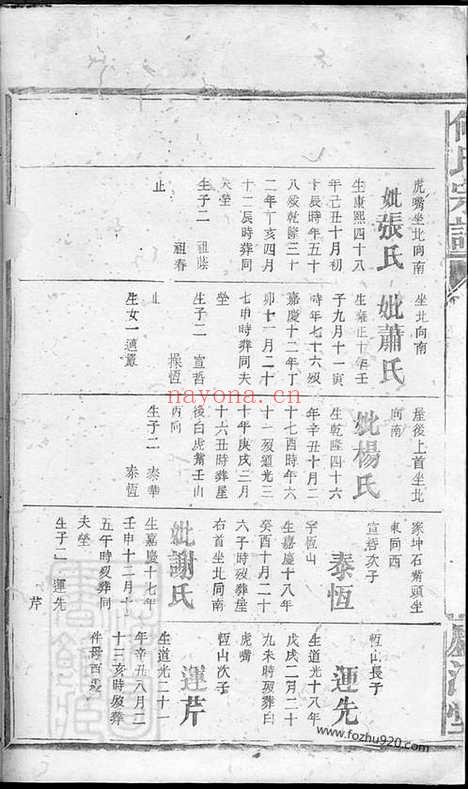 何氏宗譜
廬江堂
虎嘴坐北向南
妣張氏
生康熙四十八
年己丑十月初
卜辰時年五十
八歿乾隆三十
二年丁亥四月
十二辰時葬同
夫塋
生子二 祖蔭
祖春
止
坐北向南
妣蕭氏
生雍正十年壬
子九月十一寅
時年七十六歿
嘉慶十二年丁
卯十一月二十
七申時葬同夫
塋
生子二 宣哲
操恆
止
生女一適嚴
屋後上首坐北
向南
妣楊氏
生乾隆四十六
年辛丑十月二
十七酉時年六
十一歿道光三
十年庚戌三月
十六丑時葬屋
後白虎嘴壬山
丙向
生子二 泰華
泰恆
家坤石嘴頭坐
東向西
宣哲次子
泰恆
字恆山
生嘉慶十八年
癸酉十月二十
六子時歿葬屋
右首坐北向南
妣謝氏
生嘉慶十七年
壬申十二月十
五午時歿葬同
夫塋
生子二 運先
芹
恆山長子
運先
生道光十八年
戊戌二月二十
九未時歿葬
虎嘴
恆山次子
運芹
生道光二十一
年辛丑八月二
十三亥時歿葬
件母百
nayona.cn
www.fozhu920.com